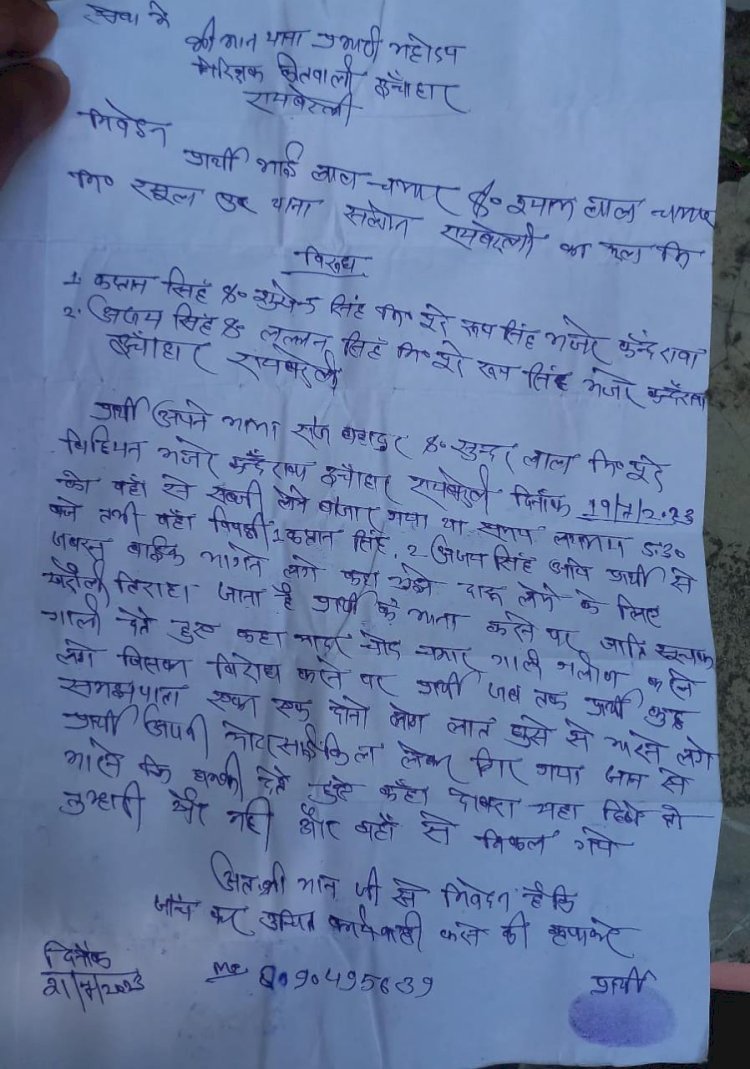 सेवा में
श्री मान थाना प्रभारी महोदय
निरिक्षक कोतवाली ऊँचाहार
रायबरेली
निवेदन
प्रार्थी भाई लाल चमार S/o श्याम लाल चमार
नि० रसूल पुर थाना सलोन रायबरेली का रहने
विरुध
1. कप्तान सिहं S/o सिंह नि० पूरे रूप सिंह मजरे कन्दरावा
2. अजय सिंह S/o लल्लन सिहं नि० पूरे रूप सिंह मजरे कन्दरावा
ऊँचाहार रायबरेली
प्रार्थी अपने मामा राज बहादुर S/o सुन्दर लाल नि० पूरे
मजरे कन्दरावा ऊँचाहार रायबरेली दिनांक 19/7/2023
को वहाँ से सब्जी लेने बाजार गया था समय लगभग 5:30
बजे तभी वहाँ विपक्षी 1 कप्तान सिंह, 2 अजय सिंह आये प्रार्थी से
जबरन बाईक मांगने लगे कहा मुझे दारू लेने के लिए
तिराहा जाना है प्रार्थी के मना करने पर जाति सूचक
गाली देते हुए कहा मादर चोद चमार गाली गलौज करने
लगे जिसका विरोध करने पर प्रार्थी जब तक प्रार्थी कुछ
समझ पाता एका एक दोनो लोग लात घुसे से मारने लगे
प्रार्थी अपनी मोटरसाईकिल लेकर गिर गया जान से
मारने कि धमकी देते हुए कहाँ दोबारा यहा दिखे तो
तुम्हारी खैर नही और वहाँ से निकल गये
अतः श्री मान जी से निवेदन है कि
जाँच कर उचित कार्यवाही करने की कृपा करे
दिनाँक
21/7/2023
Mo 8090495639
प्रार्थी